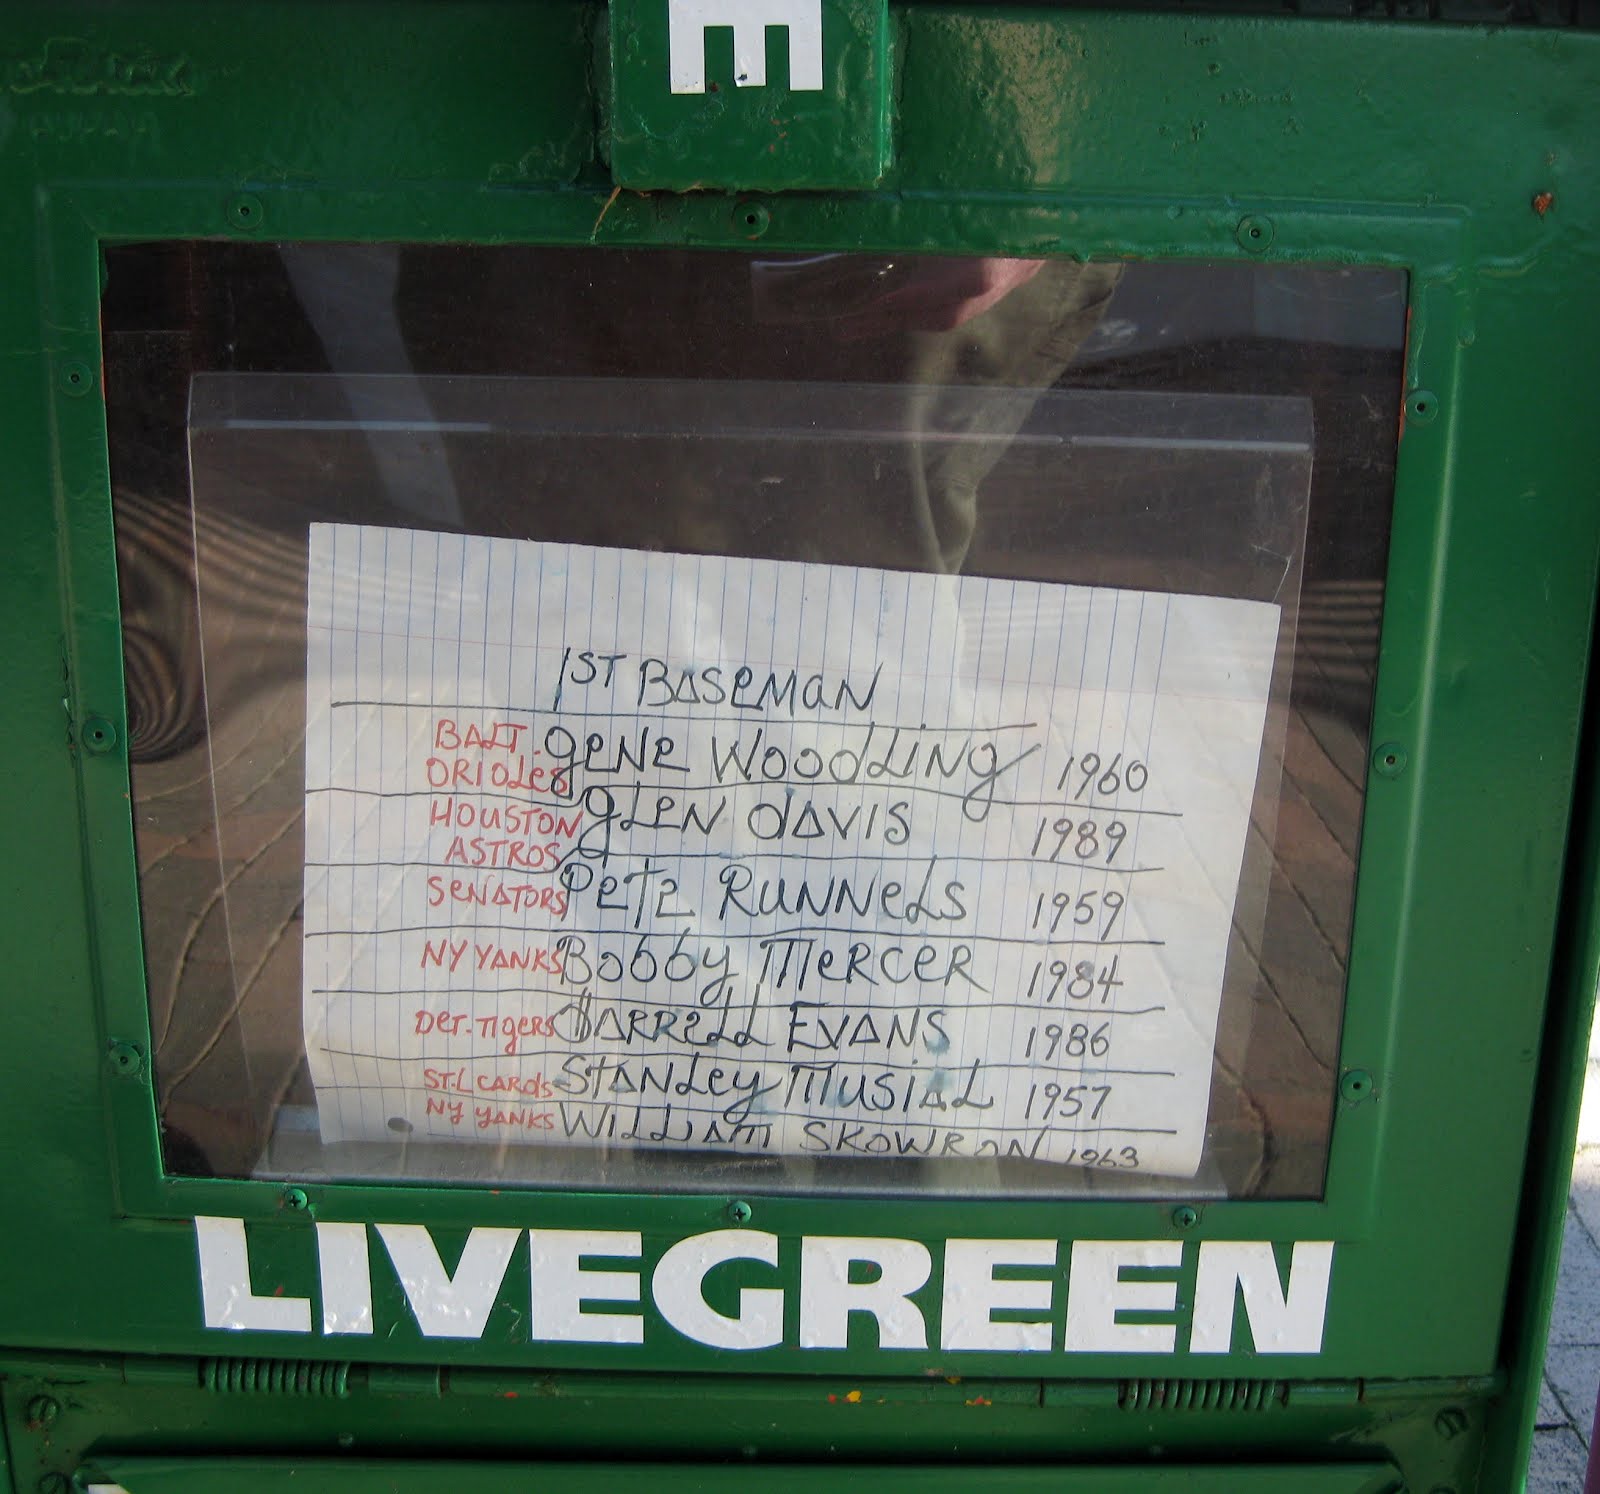 E
1ST BASEMAN
BALT. ORIOLES GENE WOODLING 1960
HOUSTON ASTROS GLEN DAVIS 1989
SENATORS PETE RUNNELS 1959
NY YANKS BOBBY MERCER 1984
DET. TIGERS DARRELL EVANS 1986
ST.L CARDS STANLEY MUSIAL 1957
NY YANKS WILLIAM SKOWRON 1963
LIVEGREEN